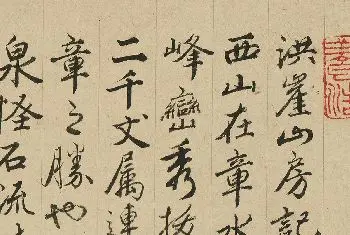 洪崖山房記
西山在章水
峰巒秀拔
二千丈属連
章之勝也
泉怪石流